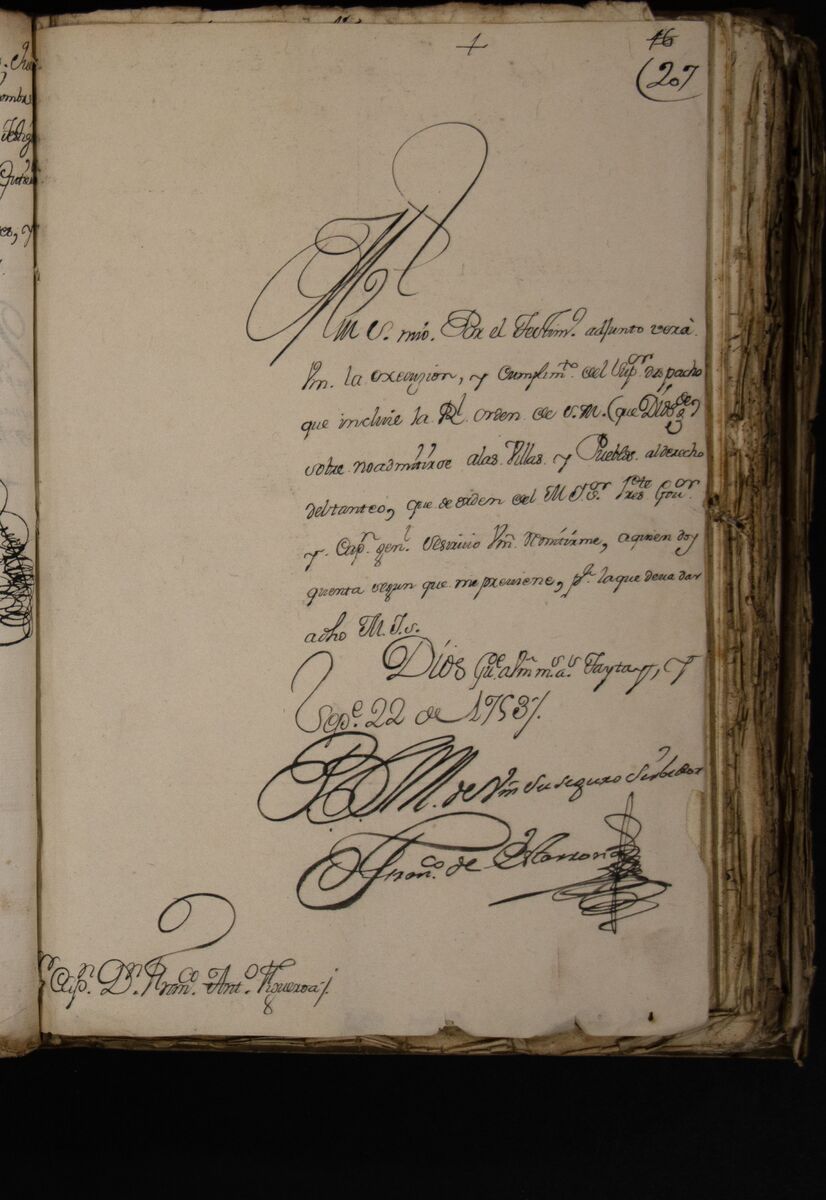 +
16
(207
Mui S. mio. Por el Testim.o adjunto verá
Vm. la execuzion, y cumplim.to del Sup.or despacho
que incluie la R.l orden de S.M. (que Dios g.de)
sobre no admitirse alas Villas y Pueblos al derecho
del tanteo, que de orden del M.I.S.or Pres.te Gov.or
y Cap.n gen.l se sirvio Vm. remitirme, a quien doy
quenta segun que me previene, p.a la que deva dar
adho M.I.S.
Dios Gu.de a Vm m.s a.s Taytay, y
Sep.e 22 de 1753
B.L.M. de Vm su seguro Serbidor
Fran.co de
S.r Cap.n D.n Fran.co Ant.o Figueroa